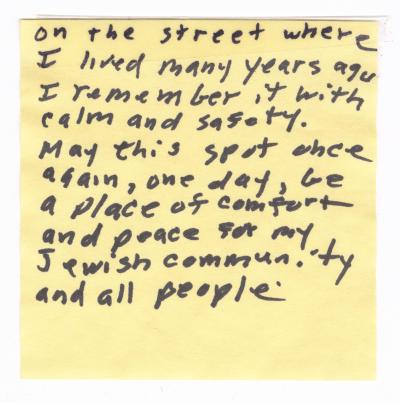 on the street where
I lived many years ago
I remember it with
calm and safety.
May this spot once
again, one day, be
a place of comfort
and peace for my
Jewish community
and all people.